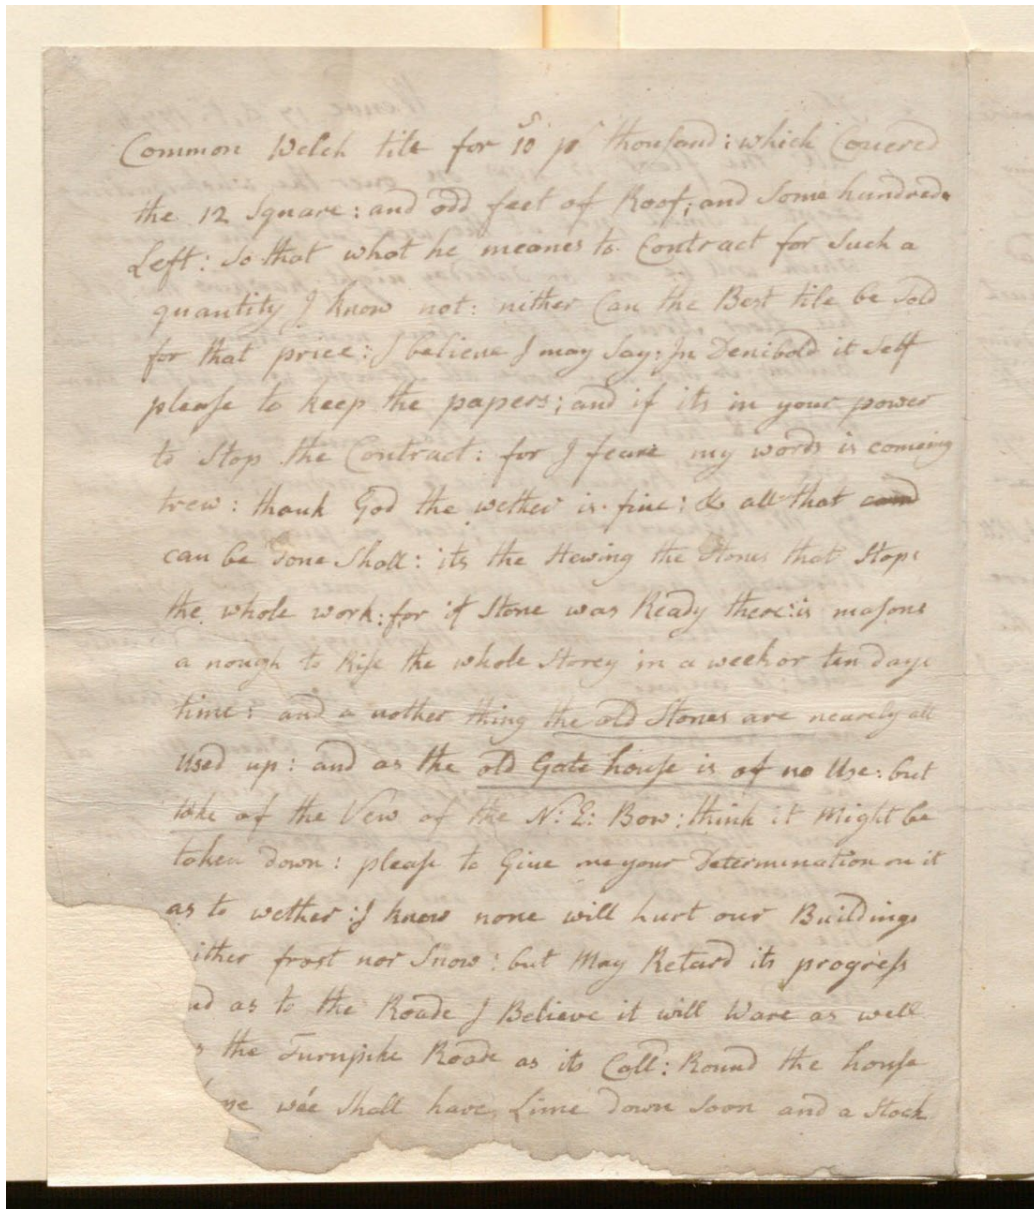 Common Welch tile for 10s pr thousand: which Covered
the 12 Square: and odd feet of Roof; and Some hundreds
Left: So that what he meanes to Contract for Such a
quantity I know not: nither Can the Best tile be Sold
for that price: I believe I may Say: In Denibold it Self
please to keep the papers; and if its in your power
to Stop the Contract: for I feare my words is comeing
trew: thank God the wether is fine: & all that
can be done Shall: its the Hewing the Stones that Stops
the whole work: for if Stone was Ready there: is masons
a nough to Rise the whole Storey in a week or ten days
time: and a nother thing the old Stones are nearely all
Used up: and as the old Gate house is of no Use: but
take of the Vew of the N: E: Bow: think it Might be
taken down: please to Give me your Determination on it
as to wether: I know none will hurt our Buildings
ither frost nor Snow: but May Retard its progress
nd as to the Roade I Believe it will Ware as well
s the Turnpike Roade as its Call'd: Round the house
ne wée Shall have Lime down Soon and a Stock